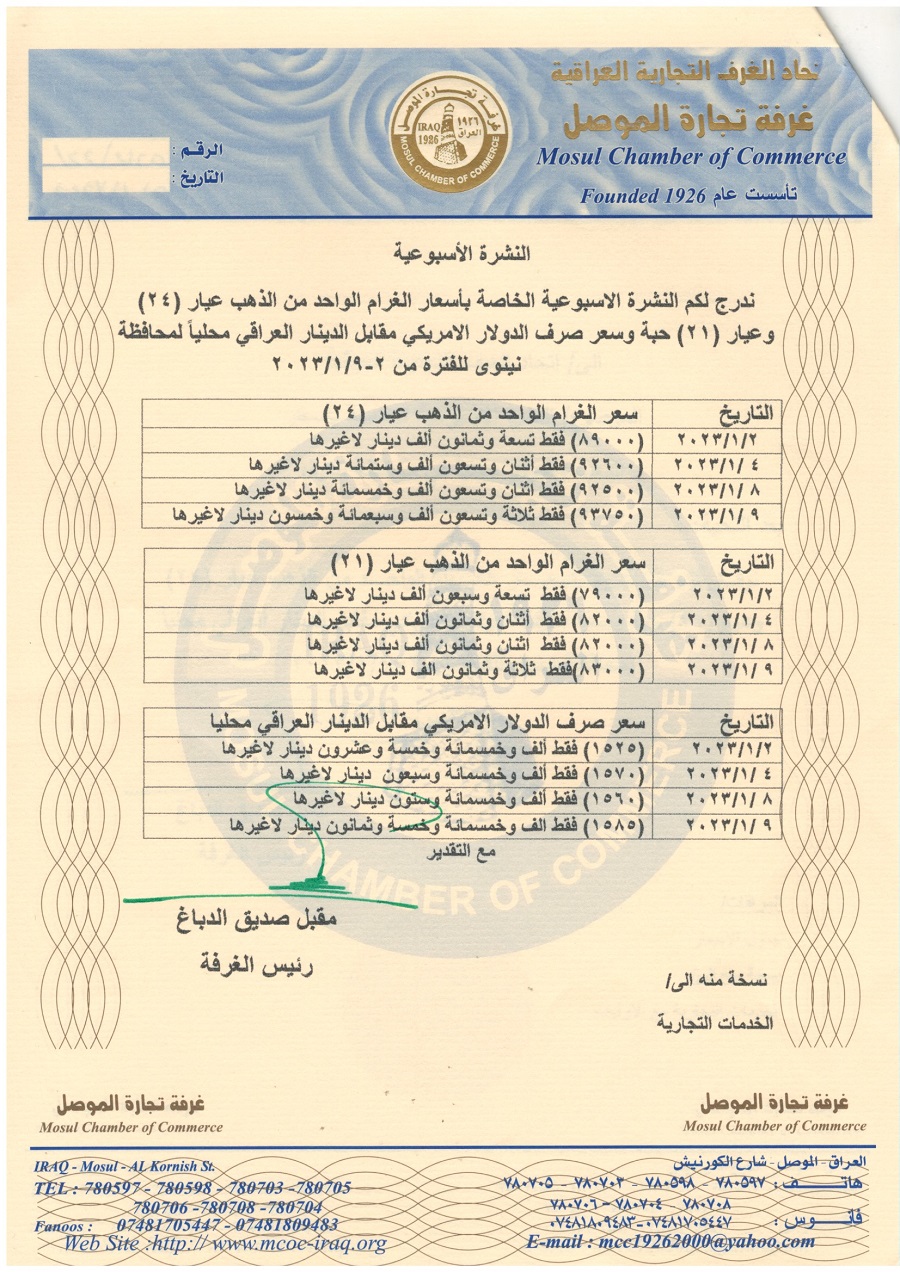 تحاد الغرف التجارية العراقية
غرفة تجارة الموصل
Mosul Chamber of Commerce
Founded 1926 تأسست عام
غرفة تجارة الموصل
IRAQ العراق
1926 ١٩٢٦
MOSUL CHAMBER OF COMMERCE
الرقم :
التاريخ :
النشرة الأسبوعية
ندرج لكم النشرة الاسبوعية الخاصة بأسعار الغرام الواحد من الذهب عيار (٢٤)
وعيار (٢١) حبة وسعر صرف الدولار الامريكي مقابل الدينار العراقي محلياً لمحافظة
نينوى للفترة من ٢-٢٠٢٣/١/٩
التاريخ سعر الغرام الواحد من الذهب عيار (٢٤)
٢٠٢٣/١/٢ (٨٩٠٠٠) فقط تسعة وثمانون ألف دينار لاغيرها
٢٠٢٣/١/ ٤ (٩٢٦٠٠) فقط أثنان وتسعون ألف وستمائة دينار لاغيرها
٢٠٢٣/١/ ٨ (٩٢٥٠٠) فقط اثنان وتسعون ألف وخمسمائة دينار لاغيرها
٢٠٢٣/١/ ٩ (٩٣٧٥٠) فقط ثلاثة وتسعون ألف وسبعمائة وخمسون دينار لاغيرها
التاريخ سعر الغرام الواحد من الذهب عيار (٢١)
٢٠٢٣/١/٢ (٧٩٠٠٠) فقط تسعة وسبعون ألف دينار لاغيرها
٢٠٢٣/١/ ٤ (٨٢٠٠٠) فقط أثنان وثمانون ألف دينار لاغيرها
٢٠٢٣/١/ ٨ (٨٢٠٠٠) فقط اثنان وثمانون ألف دينار لاغيرها
٢٠٢٣/١/ ٩ (٨٣٠٠٠)فقط ثلاثة وثمانون الف دينار لاغيرها
التاريخ سعر صرف الدولار الامريكي مقابل الدينار العراقي محليا
٢٠٢٣/١/٢ (١٥٢٥) فقط ألف وخمسمائة وخمسة وعشرون دينار لاغيرها
٢٠٢٣/١/ ٤ (١٥٧٠) فقط ألف وخمسمائة وسبعون دينار لاغيرها
٢٠٢٣/١/ ٨ (١٥٦٠) فقط ألف وخمسمائة وستون دينار لاغيرها
٢٠٢٣/١/ ٩ (١٥٨٥) فقط الف وخمسمائة وخمسة وثمانون دينار لاغيرها
مع التقدير
مقبل صديق الدباغ
رئيس الغرفة
نسخة منه الى/
الخدمات التجارية
غرفة تجارة الموصل
Mosul Chamber of Commerce
غرفة تجارة الموصل
Mosul Chamber of Commerce
العراق - الموصل - شارع الكورنيش
هاتف : ٧٨٠٥٩٧ - ٧٨٠٥٩٨ - ٧٨٠٧٠٣ - ٧٨٠٧٠٥
٧٨٠٧٠٨ - ٧٨٠٧٠٤ - ٧٨٠٧٠٦
فانوس : ٠٧٤٨١٧٠٥٤٤٧-٠٧٤٨١٨٠٩٤٨٣
E-mail : mcc19262000@yahoo.com
IRAQ - Mosul - AL Kornish St.
TEL : 780597 - 780598 - 780703 -780705
780706 -780708 -780704
Fanoos : 07481705447 - 07481809483
Web Site :http// www.mcoc-iraq.org